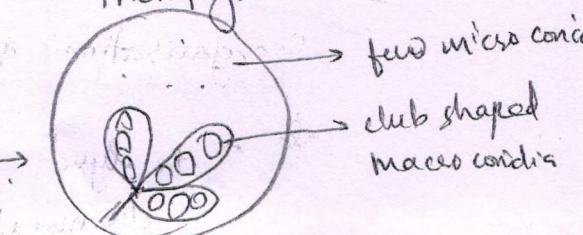 few micro
club shaped
macro conidia